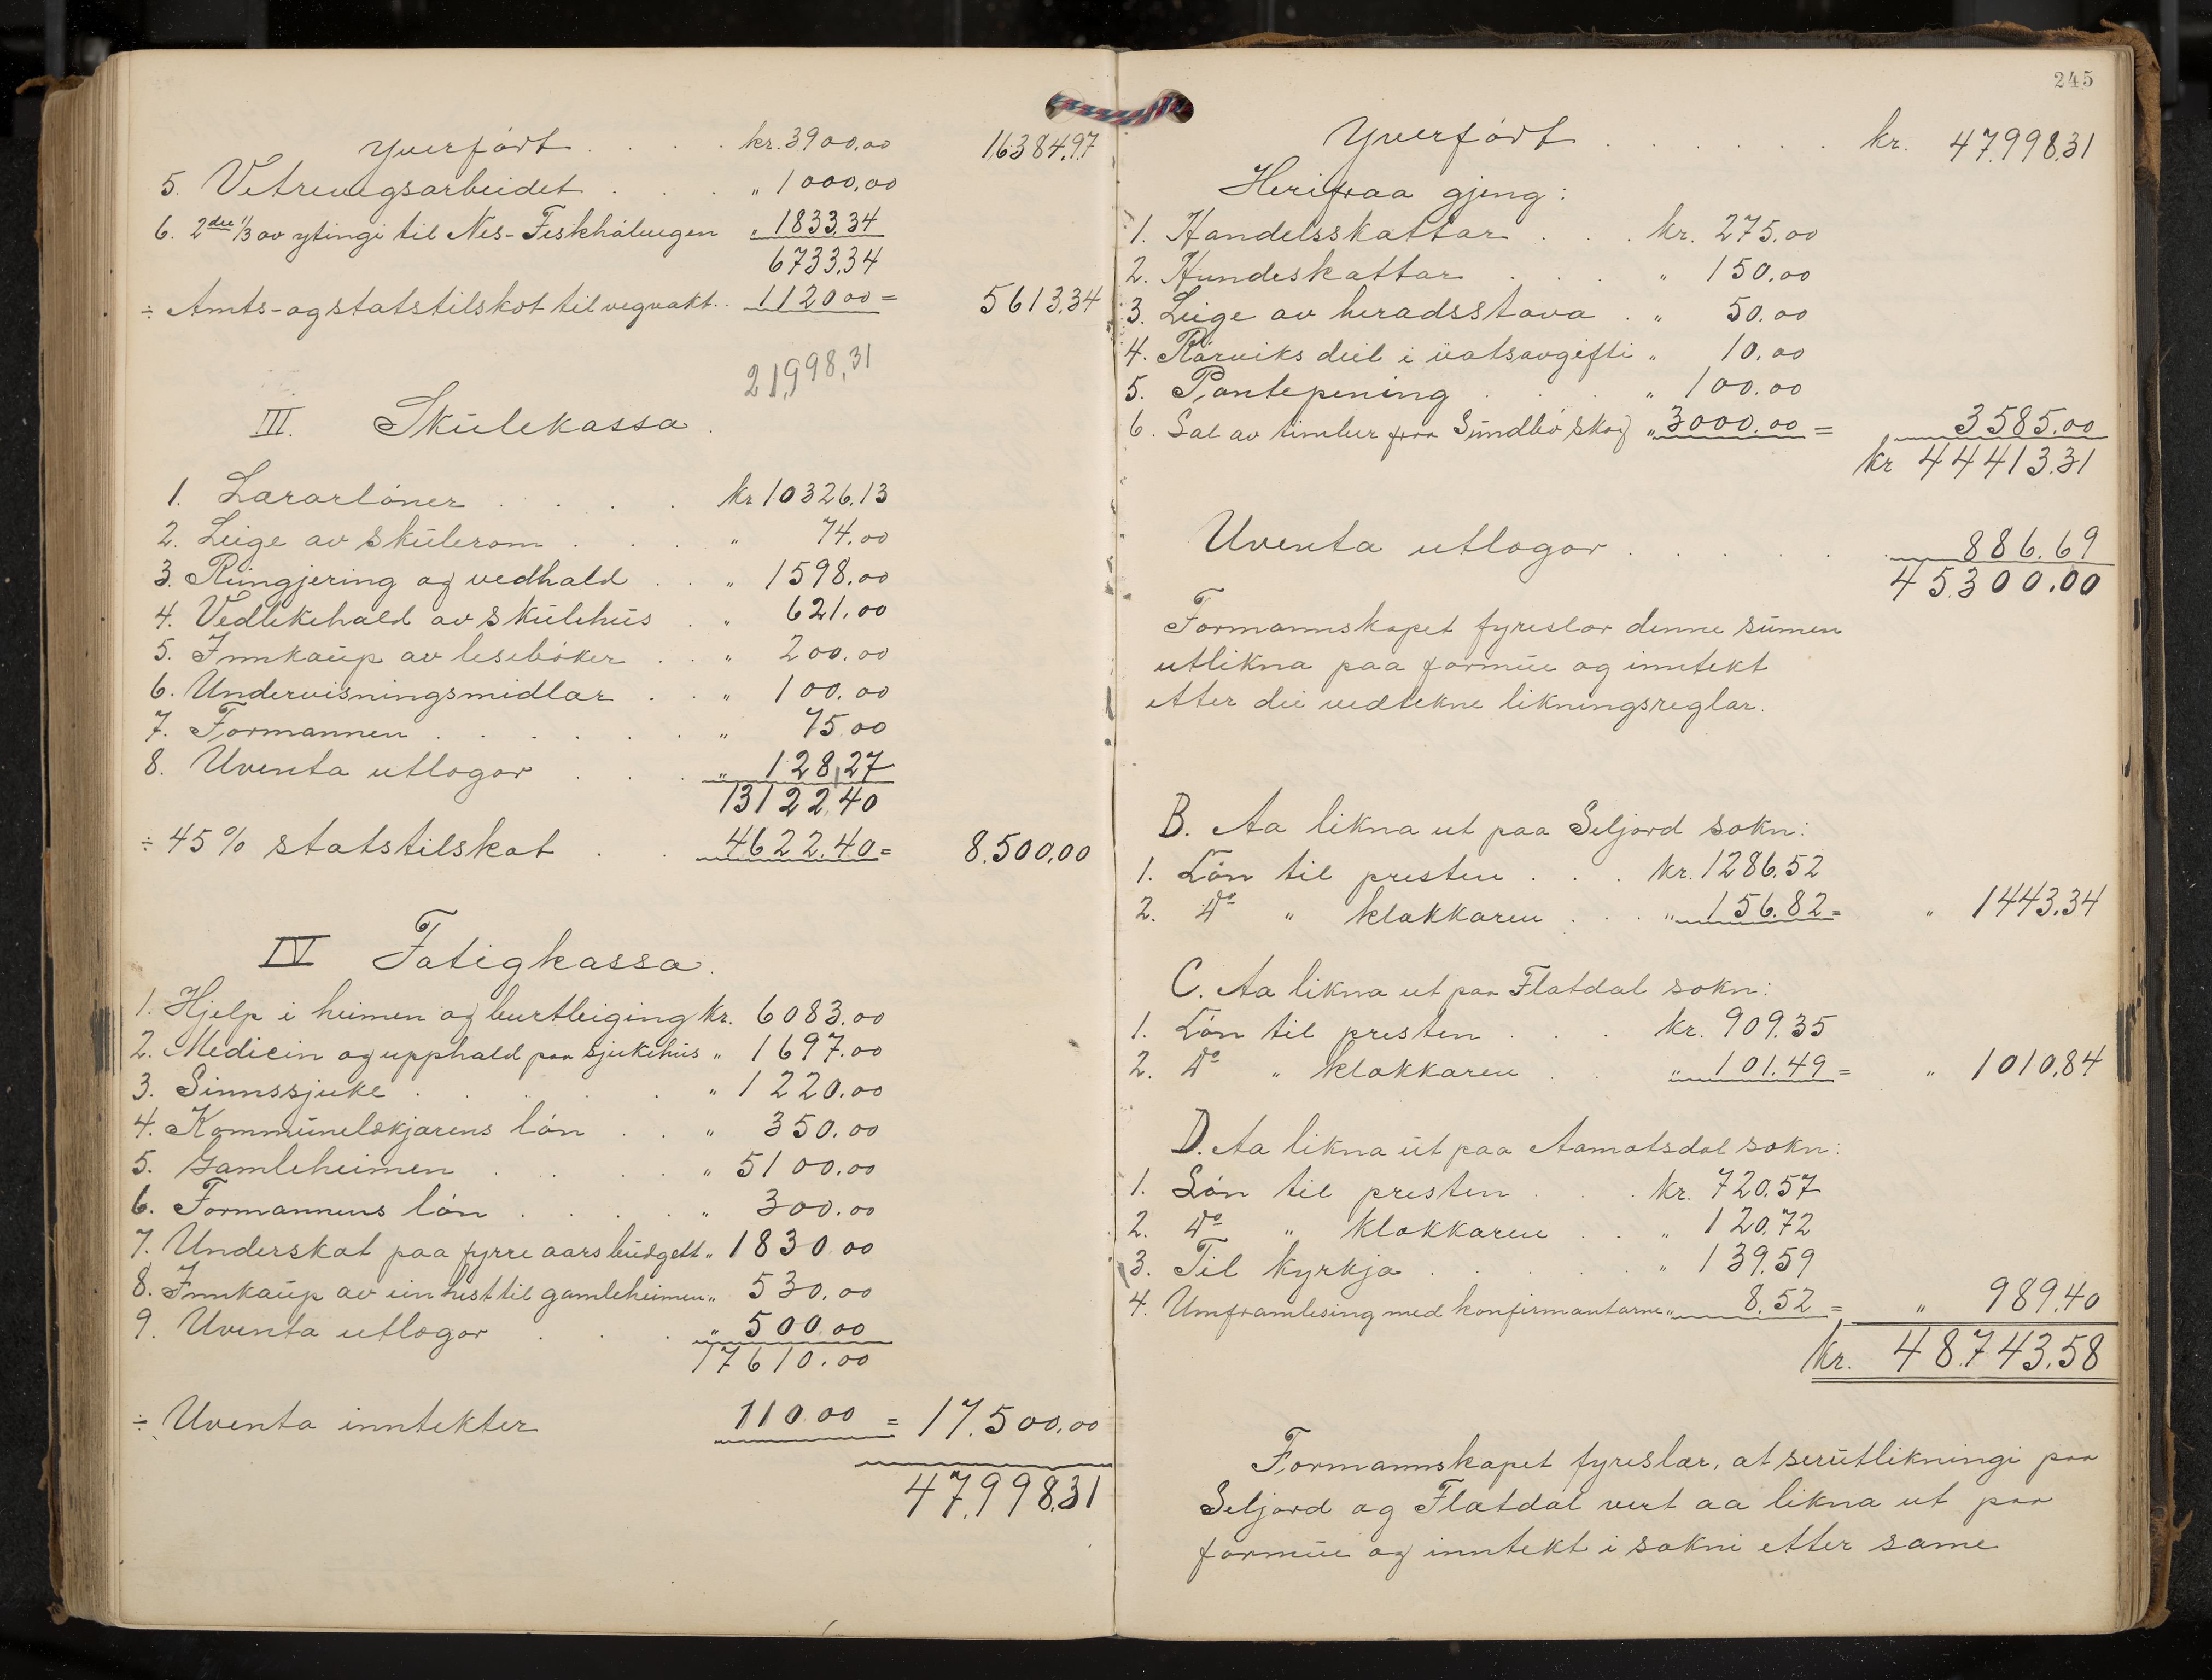 Yverført . . . . kr. 3900,00 16384,97
5. Vetrevegsarbeidet . . . " 1000,00
6. 2dre 1/3 av ytingi til Nes-Feskhålvegen " 1833,34
6733,34
÷ Amts- og statstilskot til vegvakt . . 1120 00 = 5613,34
21,998,31
III. Skülekassa.
1. Lærarløner . . . . kr 10326,13
2. Leige av skülerom . . . " 74.00
3. Reingjering og vedhald . . " 1598.00
4. Vedlikehald av skülehüs . " 621.00
5. Innkaüp av lesebøker . . " 200.00
6. Undervisningsmidlar . . " 100.00
7. Formannen . . . . . . " 75.00
8. Uventa utlogor . . . " 128,27
13122,40
÷ 45 % statstilskot . . 4622.40 = 8.500,00
IV Fatigkassa.
1. Hjelp i heimen og burtleiging kr. 6083.00
2. Medicin og upphald paa sjukehüs " 1697.00
3. Sinnssjuke . . . . . " 1220.00
4. Kommünelækjarens løn . . " 350.00
5. Gamleheimen . . . . " 5100.00
6. Formannens løn . . . . " 300.00
7. Underskot paa fyrre aars büdgett " 1830 00
8. Innkaüp av ein hest til gamleheimen " 530.00
9. Uventa utlogor . . . " 500.00
17610.00
÷ Uventa inntekter 110.00 = 17.500,00
47,998,31
245
Yverført . . . . . . kr. 47.998,31
Herifraa gjeng:
1. Handelsskattar . . . kr. 275.00
2. Hundeskattar . . . " 150.00
3. Leige av heradsstova . " 50.00
4. Rørviks deil i üatsavgifti " 10.00
5. Pantepening . . . " 100.00
6. Sal av timber fraa Sündbø skog " 3000.00 = 3585.00
kr 44413.31
Uventa utlogor . . . . . 886.69
45.300.00
Formannskapet fyreslær denne sümen
utlikna paa formüe og inntekt
etter dei vedtekne likningsreglar.
B. Aa likna ut paa Seljord sokn:
1. Løn til presten . . . kr. 1286.52
2. Do " klokkaren . . . " 156.82 = " 1443.34
C. Aa likna ut paa Flatdal sokn:
1. Løn til presten . . . kr. 909.35
2. Do " klokkaren . . " 101.49 = " 1010,84
D. Aa likna üt paa Aamotsdal sokn:
1. Løn til presten . . . kr. 720.57
2. Do " klokkaren . . " 120.72
3. Til kyrkja . . . . . " 139.59
4. Umframlesing med konfirmantarne " 8.52 = " 989.40
kr. 48.743,58
Formannskapet fyreslær, at serütlikningi paa
Seljord og Flatdal vert aa likna ut paa
formüe og inntekt i sokni etter same